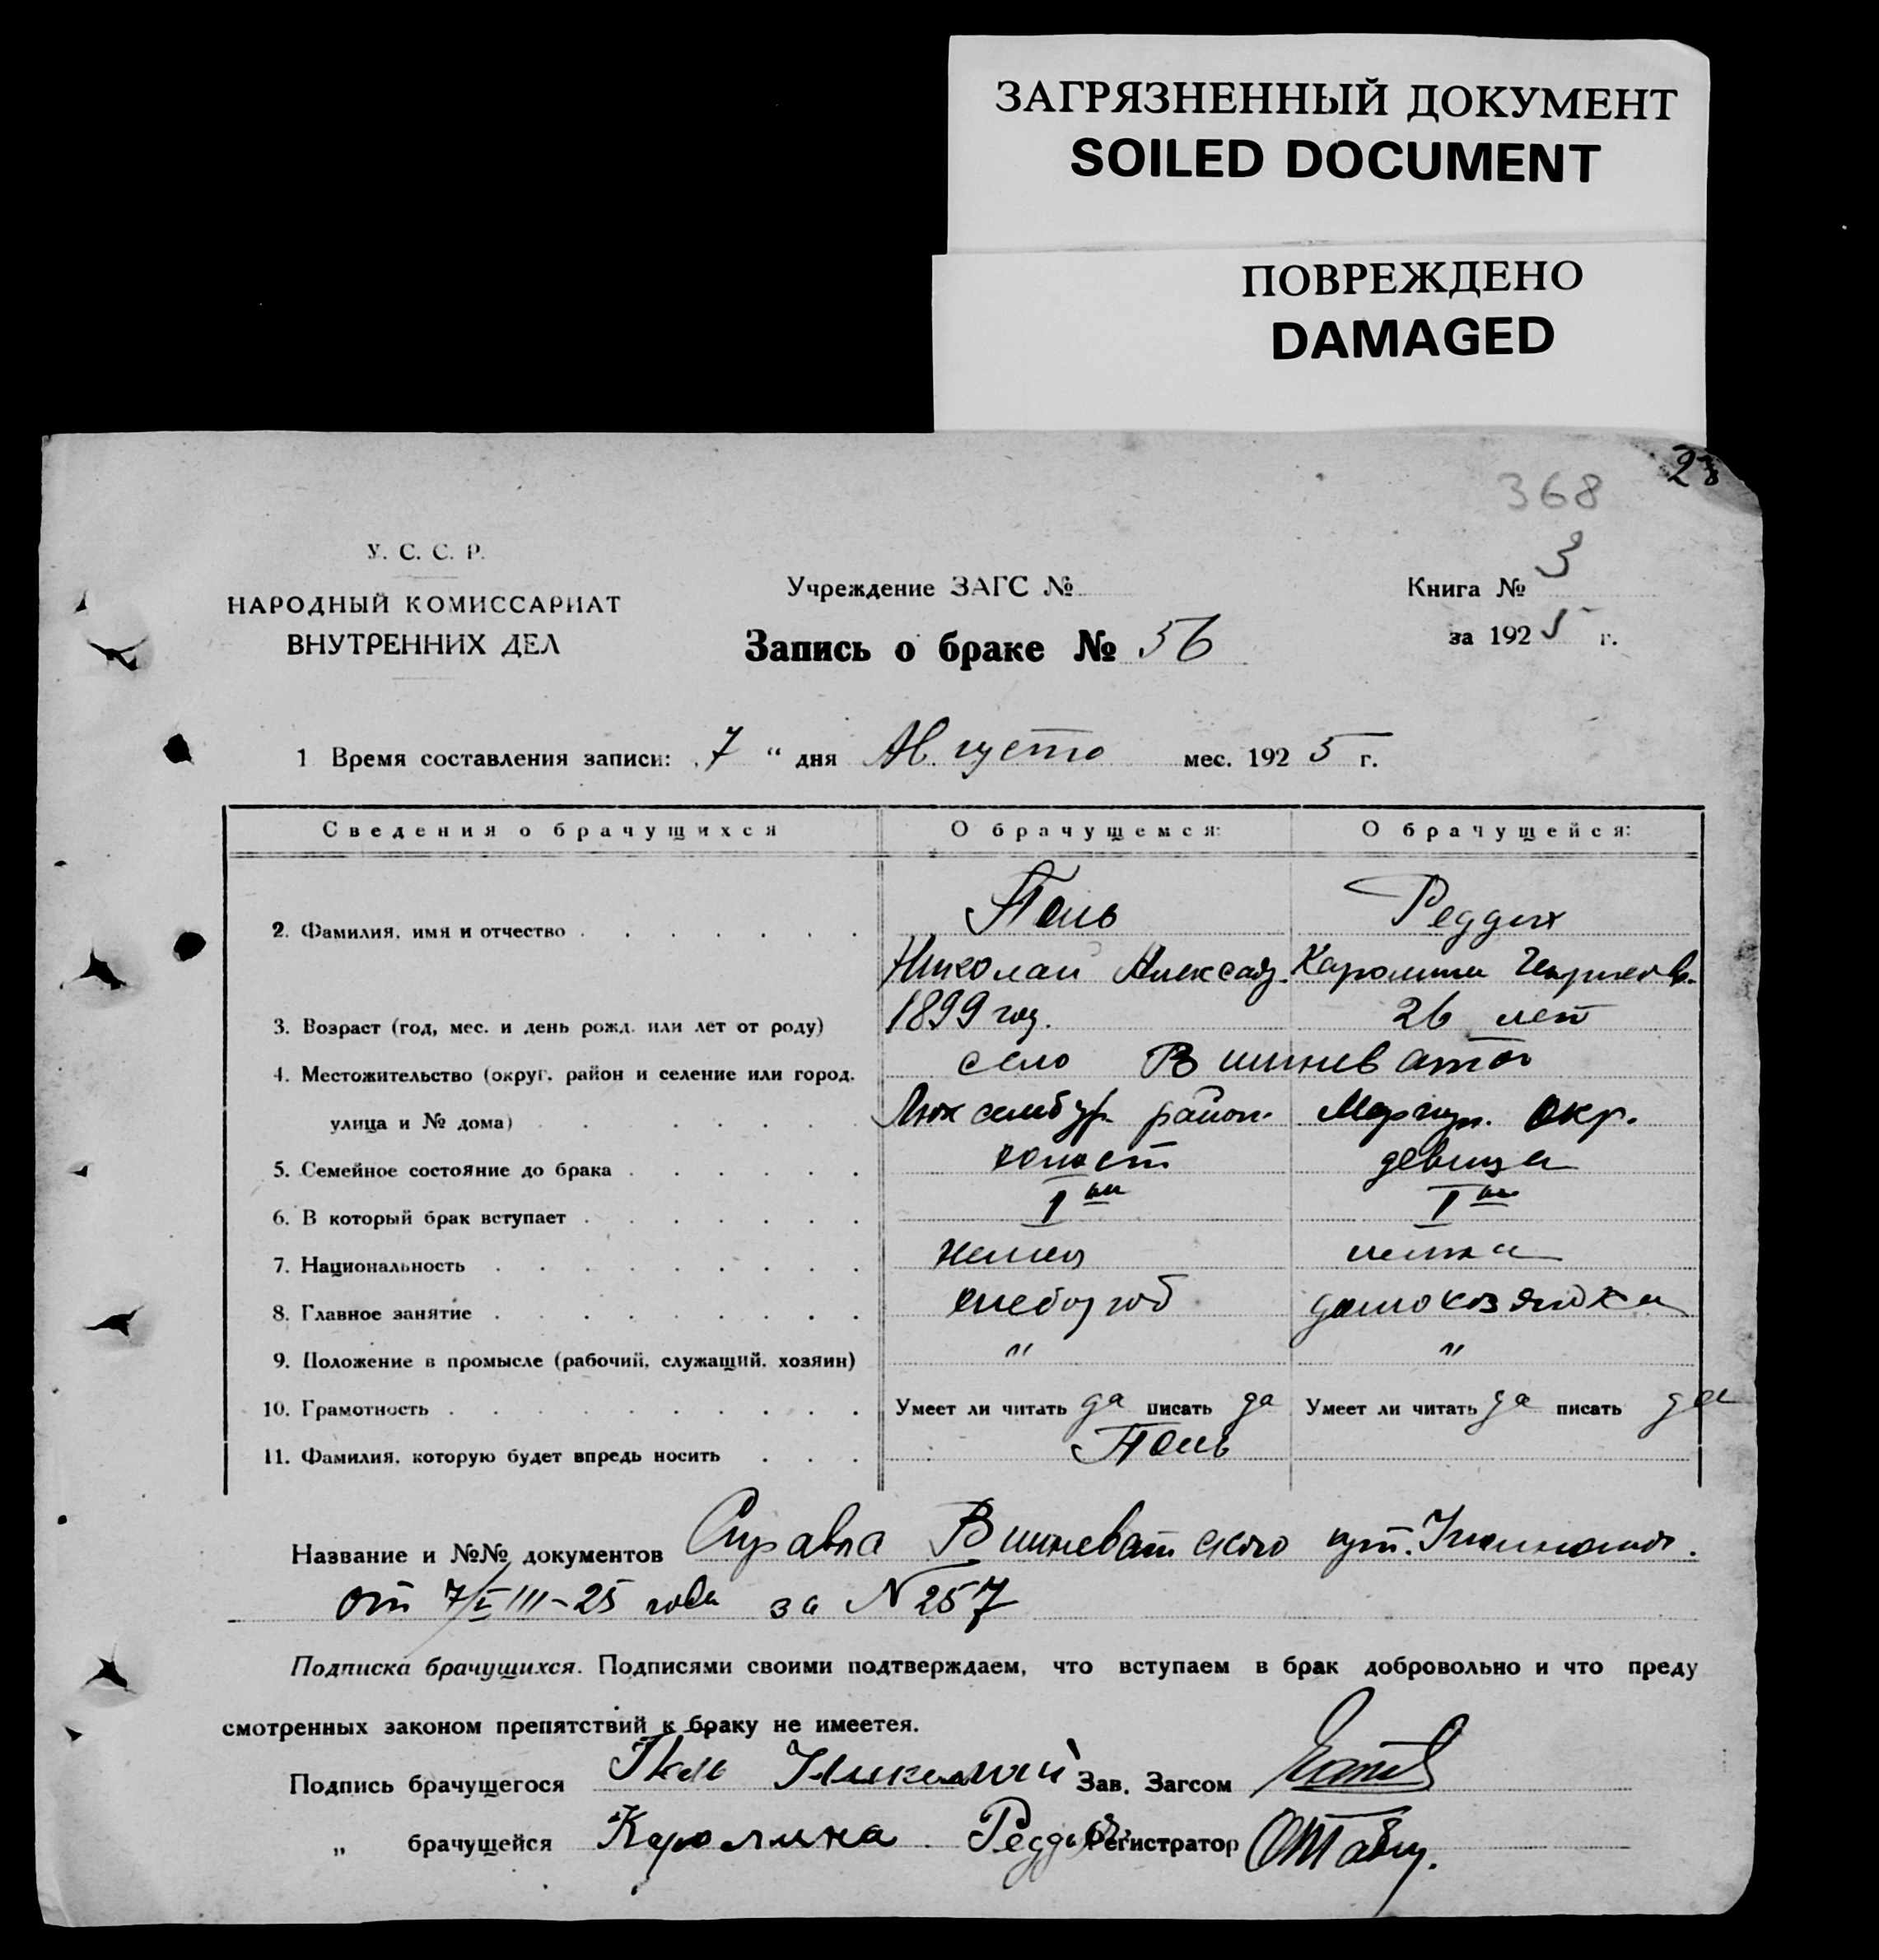 ЗАГРЯЗНЕННЫЙ ДОКУМЕНТ
SOILED DOCUMENT
ПОВРЕЖДЕНО
DAMAGED
28
368
У. С. С. Р.
НАРОДНЫЙ КОМИССАРИАТ
ВНУТРЕННИХ ДЕЛ
Учреждение ЗАГС №
Запись о браке № 56
Книга № 3
за 1925 г.
1 Время составления записи: „7 “ дня Августа мес. 1925 г.
Сведения о брачущихся О брачущемся: О брачущейся:
2. Фамилия, имя и отчество Поль Реддих
Николай Александ. Каролина
3. Возраст (год, мес. и день рожд. или лет от роду) 1899 год. 26 лет
4. Местожительство (округ, район и селение или город, село Вишневатое
улица и № дома) Люксембур. район. Мариуп. окр.
5. Семейное состояние до брака холост девица
6. В который брак вступает I ый I ый
7. Национальность немец немка
8. Главное занятие хлебороб домохозяйка
9. Положение в промысле (рабочий, служащий, хозяин) " "
10. Грамотность Умеет ли читать да писать да Умеет ли читать да писать да
11. Фамилия, которую будет впредь носить Поль
Название и №№ документов Справка Вишневатского
от 7/VIII-25 года за N 257
Подписка брачущихся. Подписями своими подтверждаем, что вступаем в брак добровольно и что преду
смотренных законом препятствий к браку не имеется.
Подпись брачущегося Поль Николай Зав. Загсом
„ брачущейся Каролина Реддих Регистратор